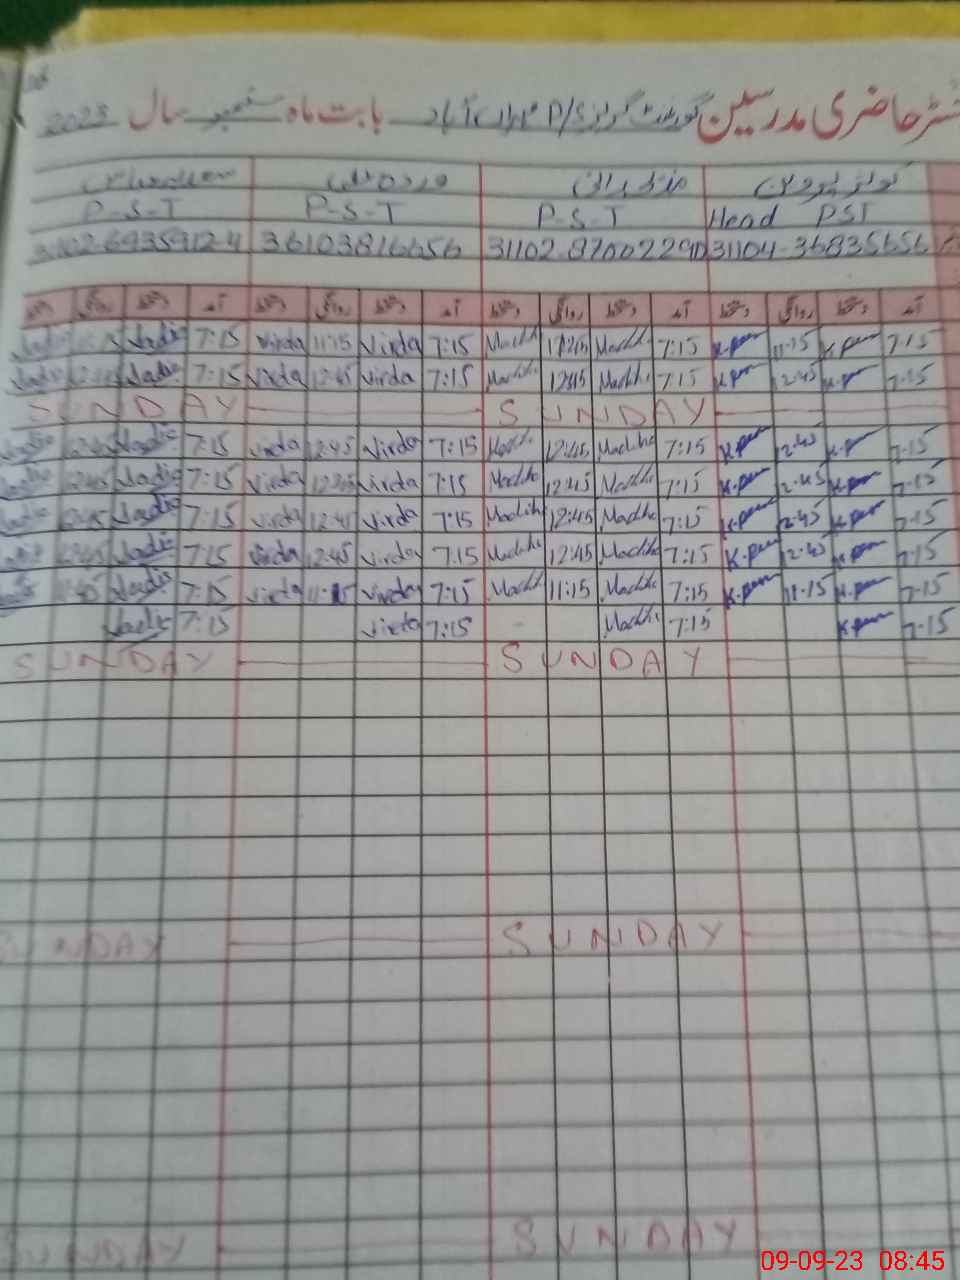 رجسٹر حاضری مدرسین گورنمنٹ گرلز P/S آباد بابت ماہ ستمبر سال 2023
Head PST P-S-T P-S-T P-S-T
31104-36835656 31102-87002290 36103816656 31102-6935912-4
آمد دستخط روانگی دستخط آمد دستخط روانگی دستخط آمد دستخط روانگی دستخط آمد دستخط روانگی دستخط
7:15 K.pun 11:15 K.pun 7:15 Madiha 12:45 Madiha 7:15 Virda 11:15 Virda 7:15 Nadia
7:15 K.pun 12:45 K.pun 7:15 Madiha 12:45 Madiha 7:15 Virda 12:45 Virda 7:15 Nadia 12:45 Nadia
SUNDAY SUNDAY
7:15 K.pun 12:45 K.pun 7:15 Madiha 12:45 Madiha 7:15 Virda 12:45 Virda 7:15 Nadia 12:45 Nadia
7:15 K.pun 12:45 K.pun 7:15 Madiha 12:45 Madiha 7:15 Virda 12:45 Virda 7:15 Nadia 12:45 Nadia
7:15 K.pun 12:45 K.pun 7:15 Madiha 12:45 Madiha 7:15 Virda 12:45 Virda 7:15 Nadia 12:45 Nadia
7:15 K.pun 12:45 K.pun 7:15 Madiha 12:45 Madiha 7:15 Virda 12:45 Virda 7:15 Nadia 12:45 Nadia
7:15 K.pun 11:15 K.pun 7:15 Madiha 11:15 Madiha 7:15 Virda 11:15 Virda 7:15 Nadia Nadia
7:15 K.pun 7:15 Madiha 7:15 Virda 7:15 Nadia
SUNDAY SUNDAY
SUNDAY SUNDAY
SUNDAY SUNDAY
09-09-23 08:45